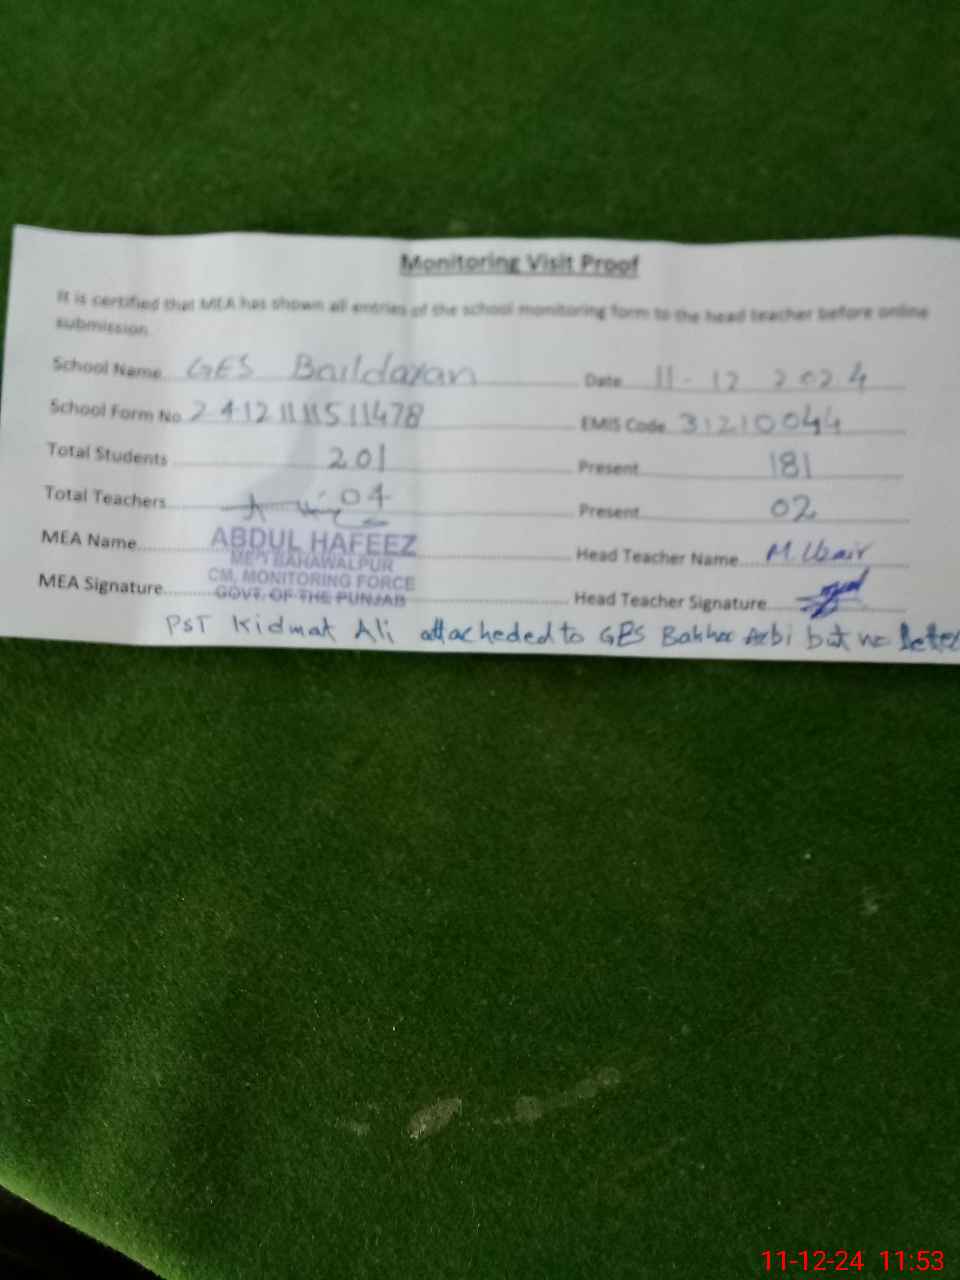 Monitoring Visit Proof
It is certified that MEA has shown all entries of the school monitoring form to the head teacher before online
submission
School Name GES Baildaran Date 11-12 2024
School Form No 2412111511478 EMIS Code 31210044
Total Students 201 Present 181
Total Teachers 04 Present 02
MEA Name ABDUL HAFEEZ Head Teacher Name M. Uzair
MEA BAHAWALPUR
CM, MONITORING FORCE
MEA Signature GOVT. OF THE PUNJAB Head Teacher Signature
PST Kidmat Ali attacheded to GES Bakhar Arbi but no letter
11-12-24 11:53